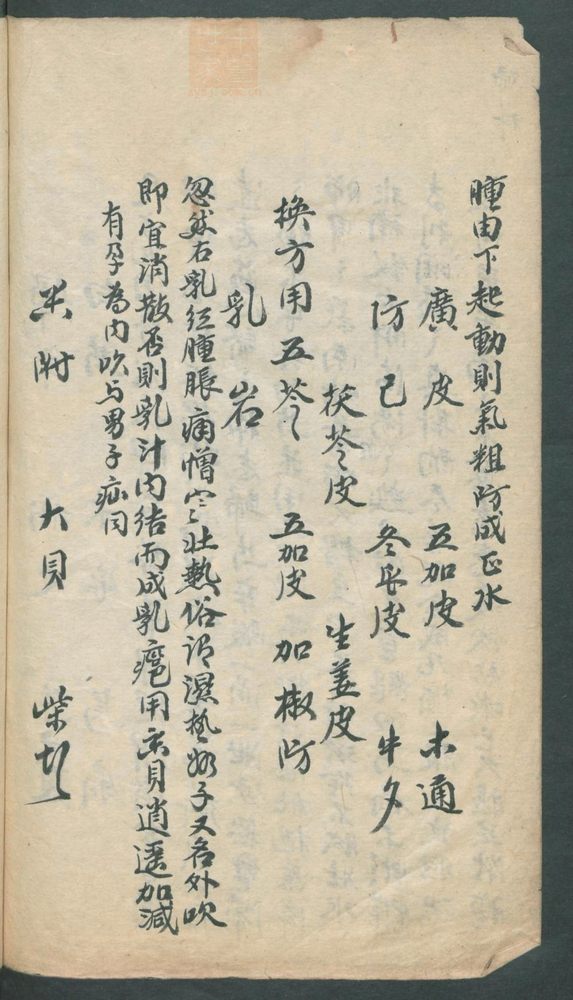 腫由下起動則氣粗防成正水
廣皮 五加皮 木通
防己 冬瓜皮 牛夕
茯苓皮 生姜皮
換方用五苓 五加皮 加椒防
乳岩
忽然右乳红腫脹痛憎寒壮熱俗谓濕热奶子又名外吹
即宜消散否則乳汁内结而成乳癰用 貝逍遥加減
有孕為内吹与男子 同
附 大貝 柴胡